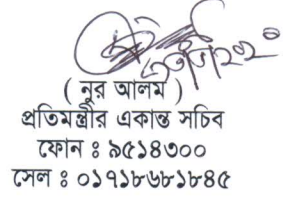 ( নুর আলম )
প্রতিমন্ত্রীর একান্ত সচিব
ফোন ঃ ৯৫১৪৩০০
সেল ঃ ০১৭১৮৬৮১৮৪৫